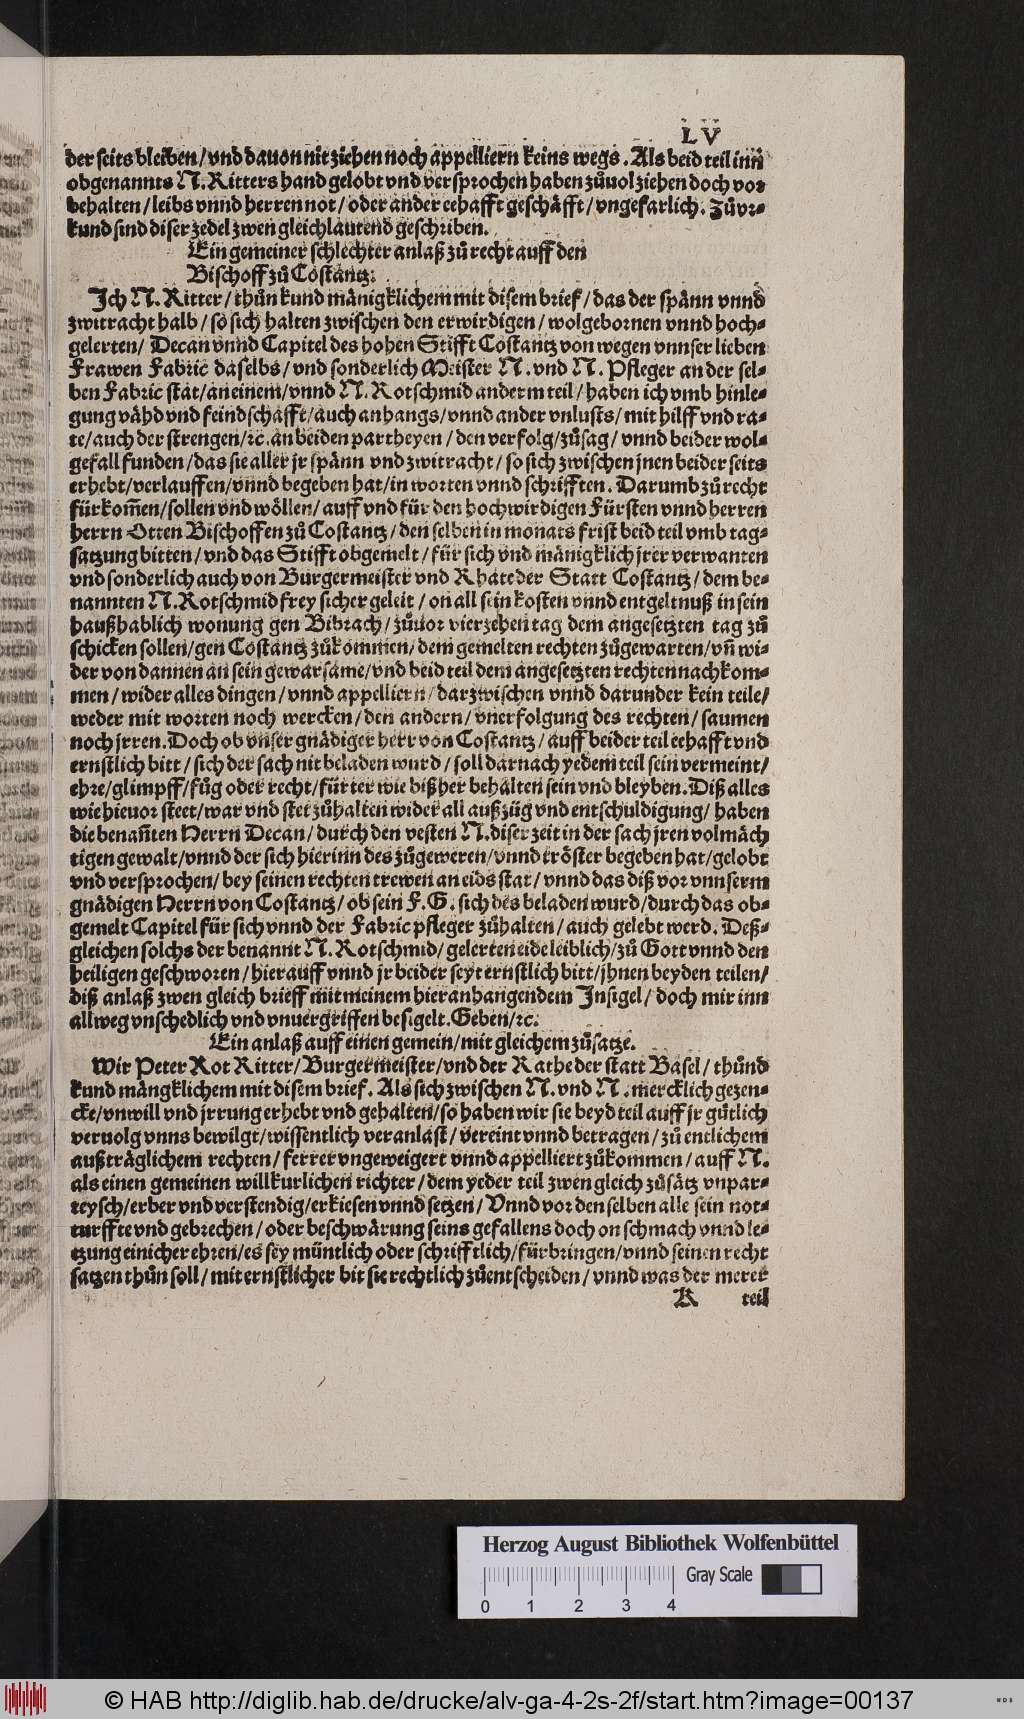 LV
der seits bleiben / vnd dauon nit ziehen noch appelliern keins wegs. Als beid teil inn̄
obgenannts N. Ritters hand gelobt vnd versprochen haben zůuolziehen doch vor
behalten / leibs vnnd herren not / oder ander eehafft geschäfft / vngefarlich. Zůvr⸗
kund sind diser zedel zwen gleichlautend geschriben.
Ein gemeiner schlechter anlaß zů recht auff den
Bischoff zů Costantz.
Ich N. Ritter / thůn kund mänigklichem mit disem brief / das der spänn vnnd
zwitracht halb / so sich halten zwischen den erwirdigen / wolgebornen vnnd hoch⸗
gelerten / Decan vnnd Capitel des hohen Stifft Costantz von wegen vnnser lieben
Frawen Fabric daselbs / vnd sonderlich Meister N. vnd N. Pfleger an der sel⸗
ben Fabric stat / an einem / vnnd N. Rotschmid anderm teil / haben ich vmb hinle⸗
gung vähd vnd feindschafft / auch anhangs / vnnd ander vnlusts / mit hilff vnd ra⸗
te / auch der strengen / ꝛc. an beiden partheyen / den verfolg / zůsag / vnnd beider wol⸗
gefall funden / das sie aller jr spänn vnd zwitracht / so sich zwischen jnen beider seits
erhebt / verlauffen / vnnd begeben hat / in worten vnnd schrifften. Darumb zů recht
fürkom̄en / sollen vnd wöllen / auff vnd für den hochwirdigen Fürsten vnnd herren
herrn Otten Bischoffen zů Costantz / den selben in monats frist beid teil vmb tag⸗
satzung bitten / vnd das Stifft obgemelt / für sich vnd mänigklich jrer verwanten
vnd sonderlich auch von Burgermeister vnd Rhate der Statt Costantz / dem be⸗
nannten N. Rotschmid frey sicher geleit / on all sein kosten vnnd entgeltnuß in sein
haußhablich wonung gen Bibrach / zůuor vierzehen tag dem angesetzten tag zů
schicken sollen / gen Costantz zůkommen / dem gemelten rechten zůgewarten / vn̄ wi⸗
der von dannen an sein gewarsame / vnd beid teil dem angesetzten rechten nachkom⸗
men / wider alles dingen / vnnd appelliern / darzwischen vnnd darunder kein teile /
weder mit worten noch wercken / den andern / vnerfolgung des rechten / saumen
noch jrren. Doch ob vnser gnädiger herr von Costantz / auff beider teil eehafft vnd
ernstlich bitt / sich der sach nit beladen wurd / soll darnach yedem teil sein vermeint /
ehre / glimpff / fůg oder recht / fürter wie bißher behalten sein vnd bleyben. Diß alles
wie hieuor steet / war vnd stet zůhalten wider all außzüg vnd entschuldigung / haben
die benan̄ten Herrn Decan / durch den vesten N. diser zeit in der sach jren volmäch
tigen gewalt / vnnd der sich hierinn des zůgeweren / vnnd tröster begeben hat / gelobt
vnd versprochen / bey seinen rechten trewen an eids stat / vnnd das diß vor vnnserm
gnädigen Herrn von Costantz / ob sein F. G. sich des beladen wurd / durch das ob⸗
gemelt Capitel für sich vnnd der Fabric pfleger zůhalten / auch gelebt werd. Deß⸗
gleichen solchs der benannt N. Rotschmid / gelerten eide leiblich / zů Gott vnnd den
heiligen geschworen / hierauff vnnd jr beider seyt ernstlich bitt / jhnen beyden teilen /
diß anlaß zwen gleich brieff mit meinem hieranhangendem Insigel / doch mir inn
allweg vnschedlich vnd vnuergriffen besigelt. Geben / ꝛc.
Ein anlaß auff einen gemein / mit gleichem zůsatze.
Wir Peter Rot Ritter / Burgermeister / vnd der Rathe der statt Basel / thůnd
kund mängklichem mit disem brief. Als sich zwischen N. vnd N. mercklich gezen⸗
cke / vnwill vnd jrrung erhebt vnd gehalten / so haben wir sie beyd teil auff jr gůtlich
veruolg vnns bewilgt / wissentlich veranlast / vereint vnnd betragen / zů entlichem
außträglichem rechten / ferrer vngeweigert vnnd appelliert zůkommen / auff N.
als einen gemeinen willkurlichen richter / dem yeder teil zwen gleich zůsätz vnpar⸗
teysch / erber vnd verstendig / erkiesen vnnd setzen / Vnnd vor denselben alle sein not⸗
turffte vnd gebrechen / oder beschwärung seins gefallens doch on schmach vnnd le⸗
tzung einicher ehren / es sey müntlich oder schrifftlich / fürbringen / vnnd seinen recht
satzen thůn soll / mit ernstlicher bit sie rechtlich zůentscheiden / vnnd was der merer
K teil
Herzog August Bibliothek Wolfenbüttel
Gray Scale
0 1 2 3 4
© HAB http://diglib.hab.de/drucke/alv-ga-4-2s-2f/start.htm?image=00137